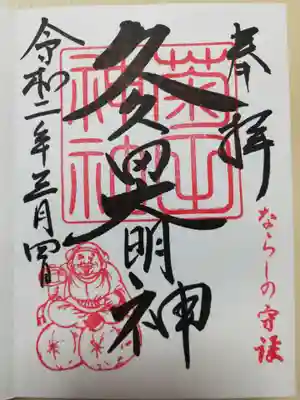 奉拝
ならしの守護
菊田
神社
久々田大明神
令和二年三月四日